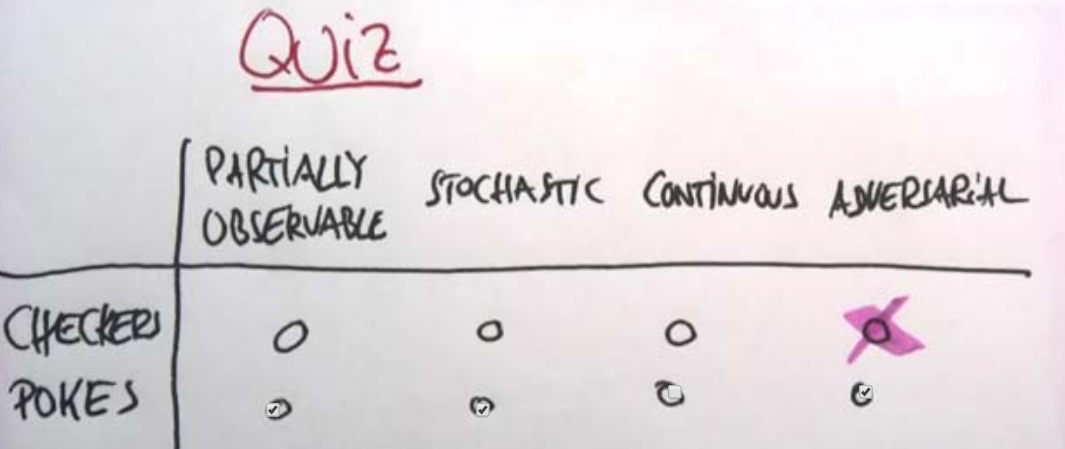 QUIZ
PARTIALLY
OBSERVABLE
STOCHASTIC
CONTINUOUS
ADVERSARIAL
CHECKERS
POKES